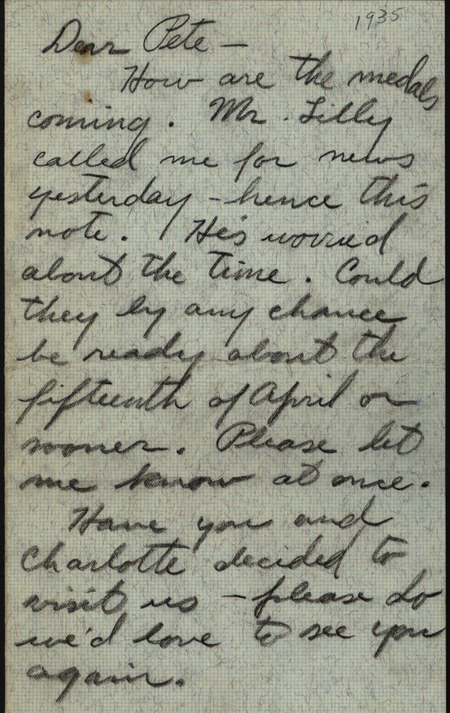 1935
Dear Pete —
How are the medals
coming. Mr. Lilly
called me for news
yesterday - hence this
note. He's worried
about the time. Could
they by any chance
be ready about the
fifteenth of April or
sooner. Please let
me know at once.
Have you and
Charlotte decided to
visit us - please do
we'd love to see you
again.